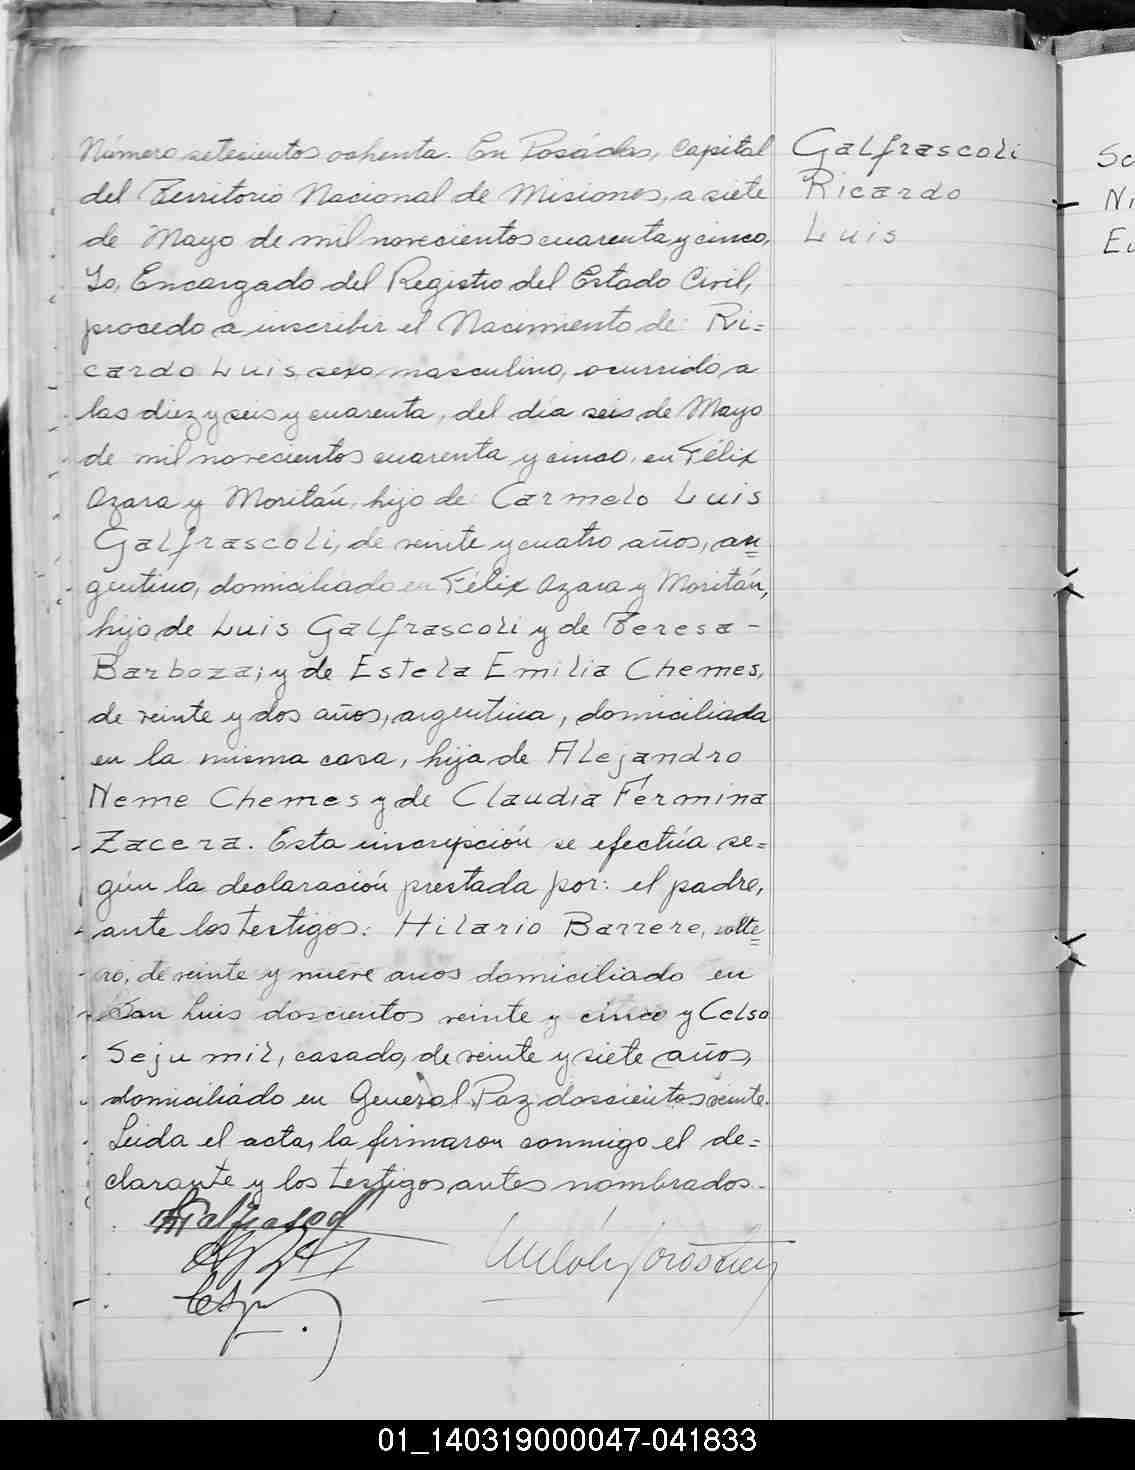 Número setecientos ochenta. En Posadas, Capital
del Territorio Nacional de Misiones, a siete
de Mayo de mil novecientos cuarenta y cinco,
Yo, Encargado del Registro del Estado Civil,
procedo a inscribir el Nacimiento de: Ri=
cardo Luis, sexo masculino, ocurrido, a
las diez y seis y cuarenta, del día seis de Mayo
de mil novecientos cuarenta y cinco, en Félix
Azara y Moritán, hijo de: Carmelo Luis
Galfrascoli, de veinte y cuatro años, ar=
gentino, domiciliado en Félix Azara y Moritán,
hijo de Luis Galfrascoli y de Teresa -
Barboza; y de Estela Emilia Chemes,
de veinte y dos años, argentina, domiciliada
en la misma casa, hija de Alejandro
Neme Chemes y de Claudia Fermina
Zacera. Esta inscripción se efectúa se=
gún la declaración prestada por: el padre,
ante los testigos: Hilario Barrere, solte=
ro, de veinte y nueve años domiciliado en
San Luis doscientos veinte y cinco y Celso
Sejumil, casado, de veinte y siete años,
domiciliado en General Paz doscientos veinte.
Leida el acta, la firmaron conmigo el de=
clarante y los testigos antes nombrados.
Galfrascoli
Ricardo
Luis
Sc
Ni
01_140319000047-041833